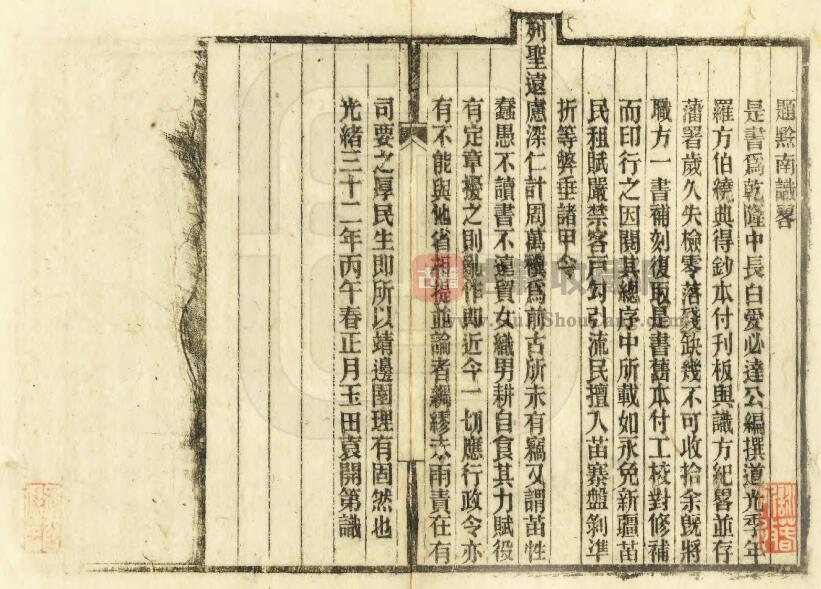 題黔南識畧
是書爲乾隆中長白愛必達公編撰道光季年
羅方伯繞典得鈔本付刊板與識方紀畧並存
藩署歲久失檢零落殘缺幾不可收拾余旣將
職方一書補刻復取是書舊本付工校對修補
而印行之因閱其總序中所載如永免新疆苗
民租賦嚴禁客戸勾引流民擅入苗寨盤剝準
折等弊垂諸甲令
列聖遠慮深仁計周萬禩爲前古所未有竊又謂苗性
蠢愚不讀書不遠貿女織男耕自食其力賦役
有定章擾之則亂作卽近今一切應行政令亦
有不能與他省相提並論者綢繆未雨責在有
司要之厚民生卽所以靖邊圉理有固然也
光緒三十二年丙午春正月玉田袁開第識
古籍
www.gujiShouCang.com